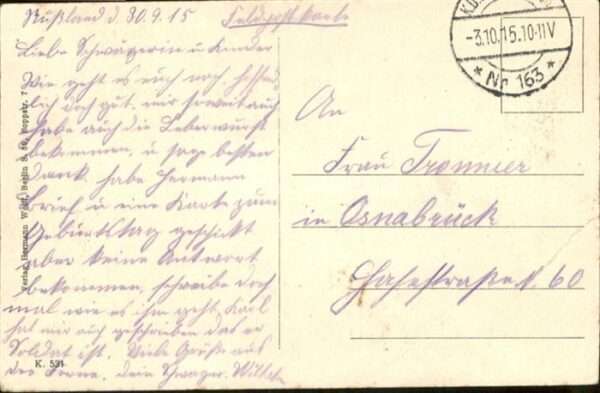 Rußland d. 30.9.15 Feldpostkarte
Liebe Schwägerin u Kinder
Wie geht es euch noch, hoffent
lich doch gut, mir soweit auch
habe auch die Leberwurst
bekommen, u sage besten
Dank, habe Hermann
Brief u eine Karte zum
Geburtstag geschickt
aber keine Antwort
bekommen, schreibe doch
mal wie es ihm geht, Karl
hat mir auch geschrieben das er
Soldat ist. Viele Grüße aus
der Ferne. dein Schwager. Wilhelm
K. 531
Verlag Hermann Wolff, Berlin S.
-3.10.15.10-11V
* Nr 163 *
An
Frau Tronnier
in Osnabrück
Hasestraße N. 60